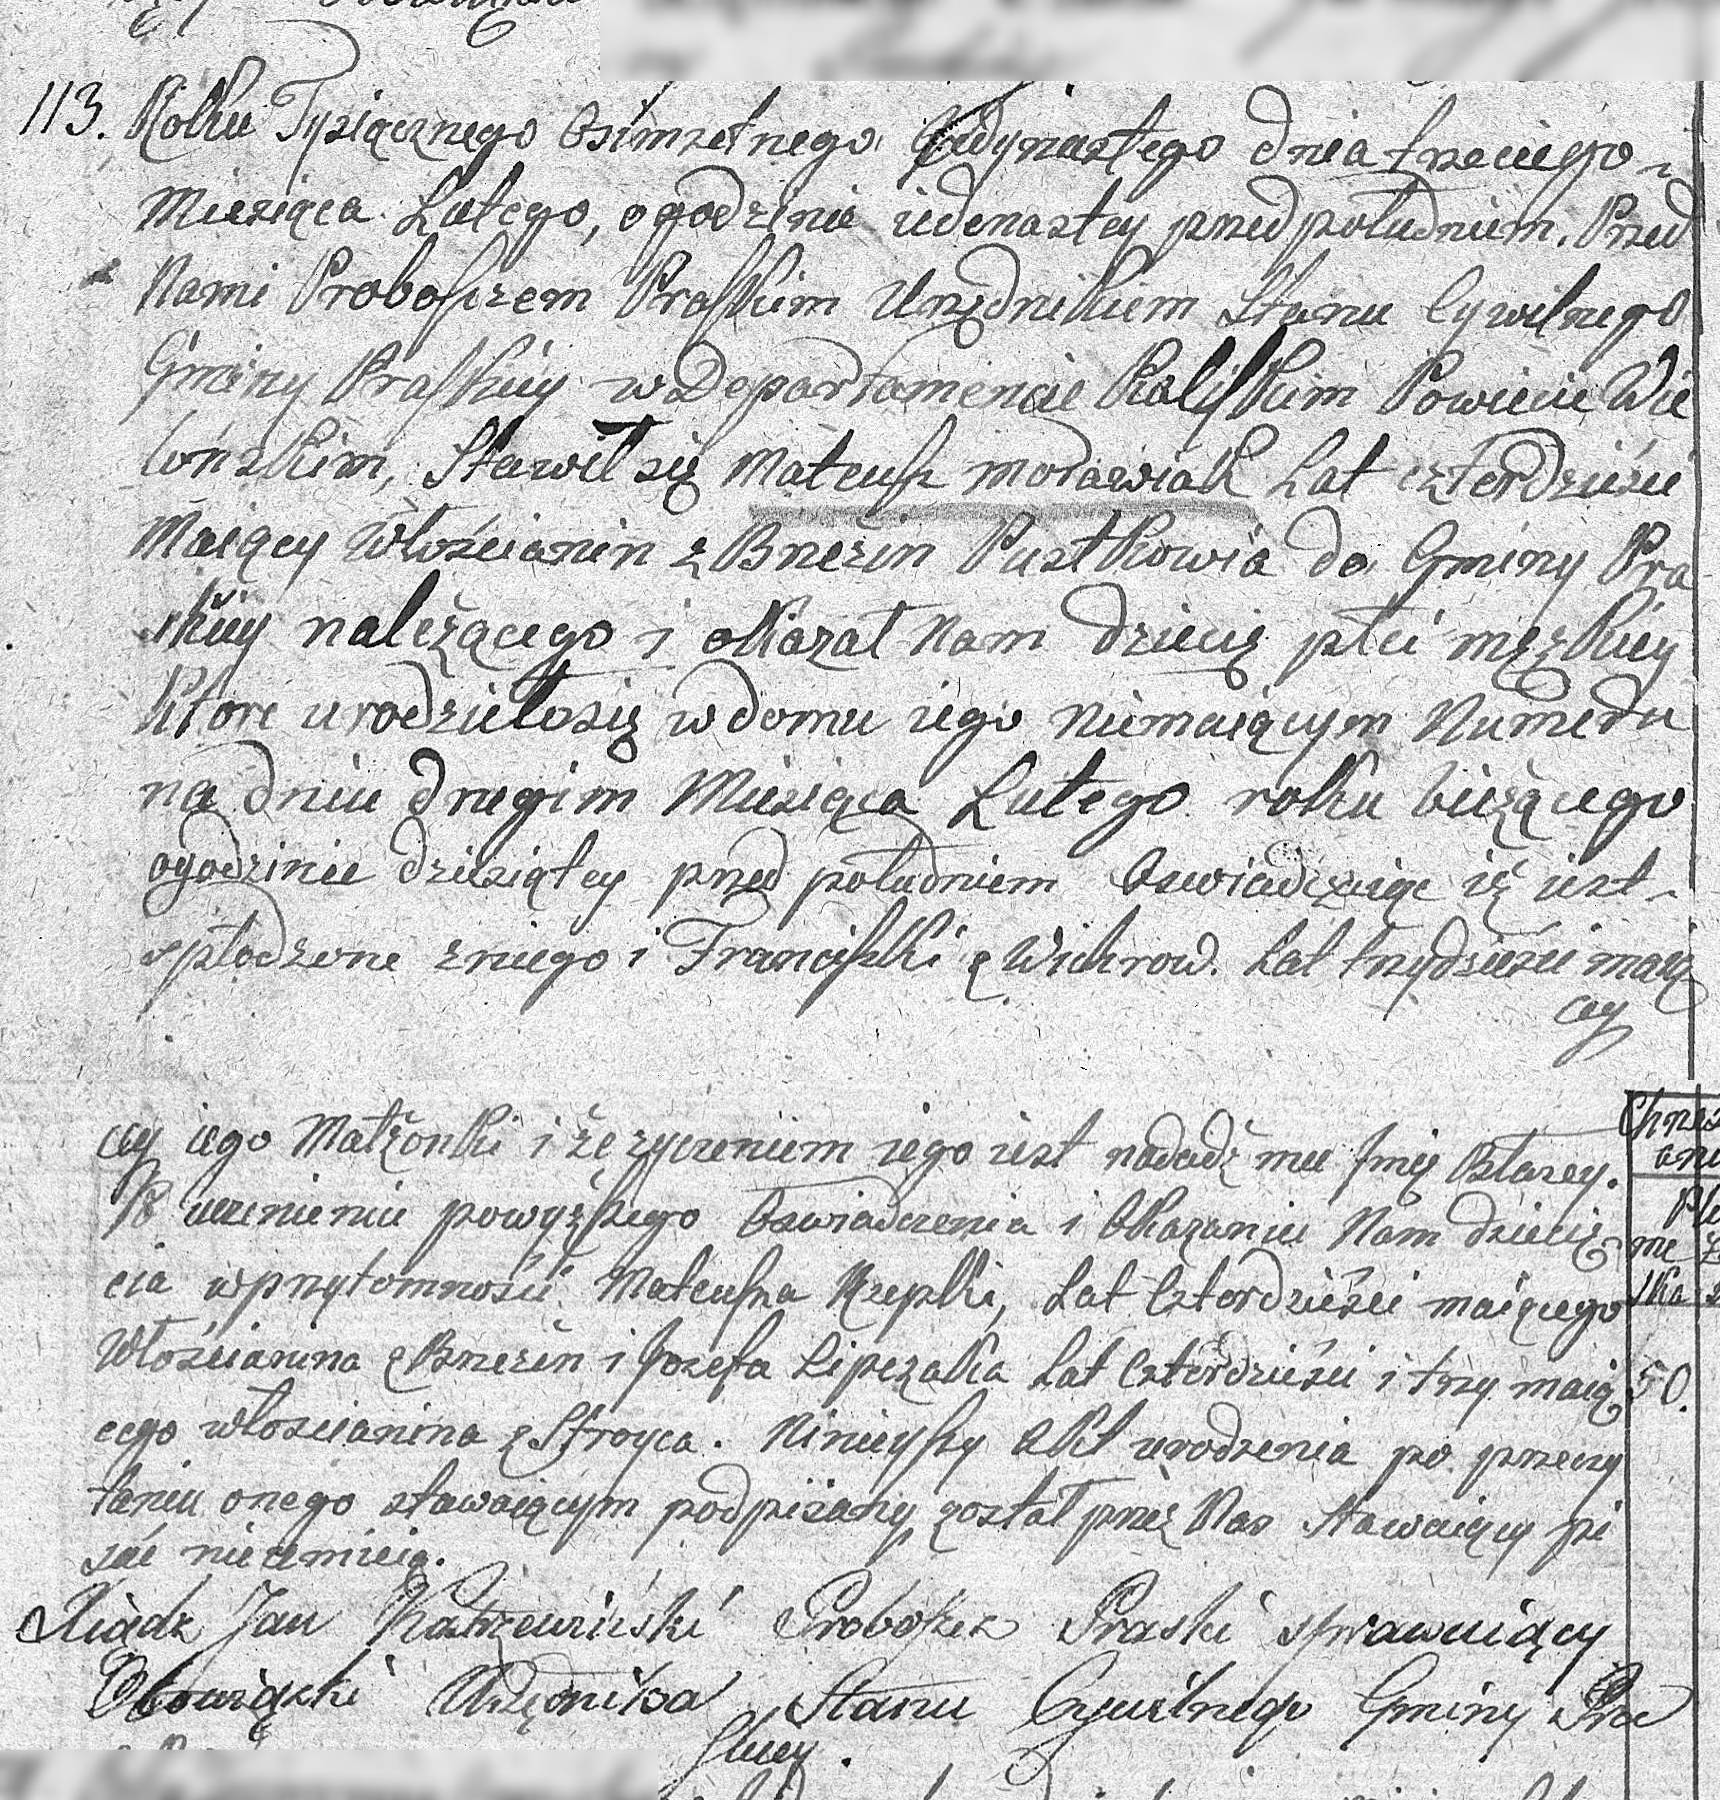 113. Roku Tysiącznego Osimsetnego Jedynastego dnia trzeciego
Miesiąca Lutego, o godzinie iedenastey przed południem. Przed
Nami Proboszczem Praskim Urzędnikiem Stanu Cywilnego
Gminy Praskiey w Departamencie Kaliskim Powiecie Wie
lońskim, Stawił się Mateusz Morawiak Lat czterdzieści
Maiący Włościanin z Brzezin Pustkowia do Gminy Pra
skiey należącego i okazał Nam dziecię płci męzkiey
które urodziełosię w domu iego niemaiącym Numeru
na dniu drugim Miesiąca Lutego roku bieżącego
o godzinie dziesiątey przed południem Oswiadczaiąc iż iest
spłodzone z niego i Franciszki z Wichrow. Lat trzydzieści maią
cey
cey iego Małżonki i że życzeniem iego iest nadadź mu Jmię Błazey.
Po uczynieniu powyższego Oswiadczenia i Okazaniu Nam dziecię
cia w przytomności Mateusza Rzepki, Lat Czterdzieści maiącego
Włościanina z Brzezin i Jozefa Lipczaka Lat Czterdzieści i trzy maią
cego włoscianina z Stroyca. Ninieyszy Akt urodzenia po przeczy
taniu onego stawaiącym podpisany został przez Nas Stawaiący pi
sać nieumieią.
Xiądz Jan Katrzewiński Proboszcz Praski sprawuiący
Obowiązki Urzędnika Stanu Cywilnego Gminy Pra
skiey.
Chrześ
ani
Płe
me
ska
50.